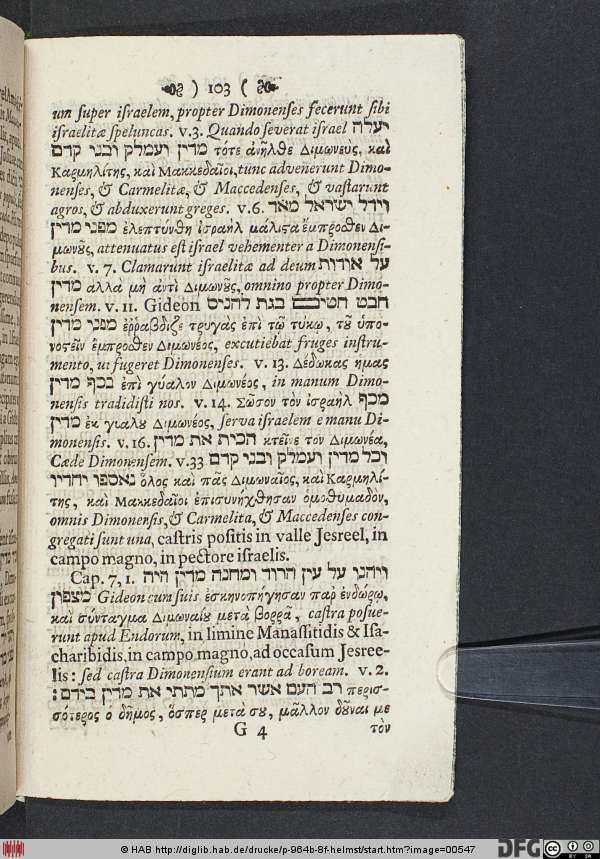 ) 103 (
um super israelem, propter Dimonenses fecerunt sibi
israelitæ speluncas. v. 3. Quando severat israel יעלה
מדין ועמלק ובני קדם τότε ἀνῆλθε Διμωνευς, καὶ
Καρμηλίτης, καὶ Μακκεδαῖοι, tunc advenerunt Dimo-
nenses, & Carmelitæ, & Maccedenses, & vastarunt
agros, & abduxerunt greges. v. 6. וידל ישראל מאד
מפני מדין ἐλεπτύνθη ἰσραὴλ μάλιϛα ἔμπροθεν Δι-
μωνȣ͂ς, attenuatus est israel vehementer a Dimonensi-
bus. v. 7. Clamarunt israelitæ ad deum על אודות
מדין ἀλλὰ μὴ ἀντὶ Διμωνȣ͂ς, omnino propter Dimo-
nensem. v. 11. Gideon חבט חטים בגת להניס
מפני מדין ἐῤῥαβδιζε τρυγὰς ἐπὶ τῶ τύκῳ, τȣ͂ ὑπο-
νοτεῖν ἔμπροθεν Διμωνέος, excutiebat fruges instru-
mento, ut fugeret Dimonenses. v. 13. Δέδωκας ἡμας
בכף מדין ἐπὶ γύαλον Διμωνέος, in manum Dimo-
nensis tradidisti nos. v. 14. Σῶσον τὸν ἰσραὴλ מכף
מדין ἐκ γυαλου Διμωνέος, serva israelem e manu Di-
monensis. v. 16. הכית את מדין κτεῖνε τὸν Διμωνέα,
Cæde Dimonensem. v. 33 וכל מדין ועמלק ובני קדם
נאספו יחדיו ὅλος καὶ πᾶς Διμωναῖος, καὶ Καρμηλί-
της, καὶ Μακκεδαῖοι ἐπισυνήχθησαν ὁμοθυμαδὸν,
omnis Dimonensis, & Carmelita, & Maccedenses con-
gregati sunt una, castris positis in valle Jesreel, in
campo magno, in pectore israelis.
Cap. 7, 1. ויחנו על עין חרוד ומחנה מדין היה
מצפון Gideon cum suis ἐσκηνοπήγησαν παρ ἐνδώρῳ,
καὶ σύνταγμα Διμωναίȣ μετὰ βορρᾶ, castra posue-
runt apud Endorum, in limine Manassitidis & Isa-
charibidis, in campo magno, ad occasum Jesree-
lis: sed castra Dimonensium erant ad boream. v. 2.
רב העם אשר אתך מתתי את מדין בידם: περισ-
σότερος ὁ δῆμος, ὅσπερ μετὰ σȣ, μᾶλλον δȣ͂ναι με
G 4 τὸν
© HAB http://diglib.hab.de/drucke/p-964b-8f-helmst/start.htm?image=00547
DFG